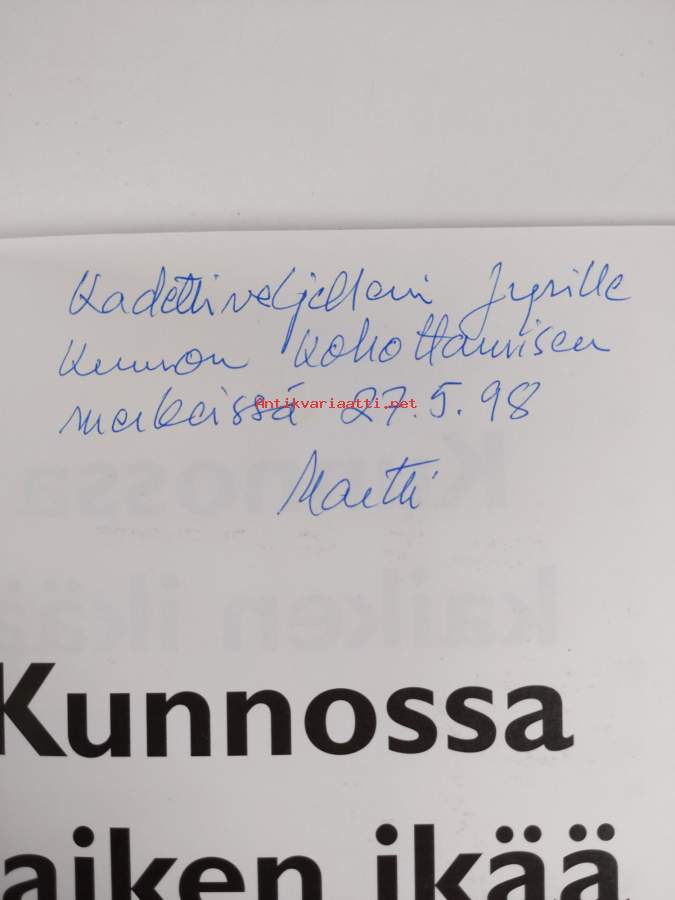 Kadettiveljelleni Jyrille
kunnon kohottamisen
merkeissä 27.5.98
Antikvariaatti.net
Martti
Kunnossa
aiken ikää